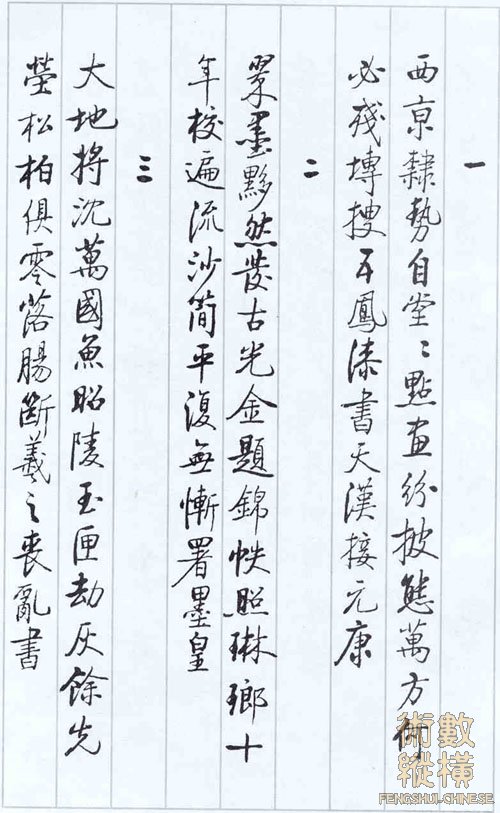 一
西京隸勢自堂〻點畫紛披態萬方何
必殘塼搜五鳳漆書天漢接元康
二
翠墨黟然發古光金題錦帙照琳瑯十
年校遍流沙簡平復無慚署墨皇
三
大地將沈萬國魚昭陵玉匣劫灰餘先
塋松柏俱零落腸斷羲之喪亂書
術數
縱橫
FENGSHUI-CHINESE